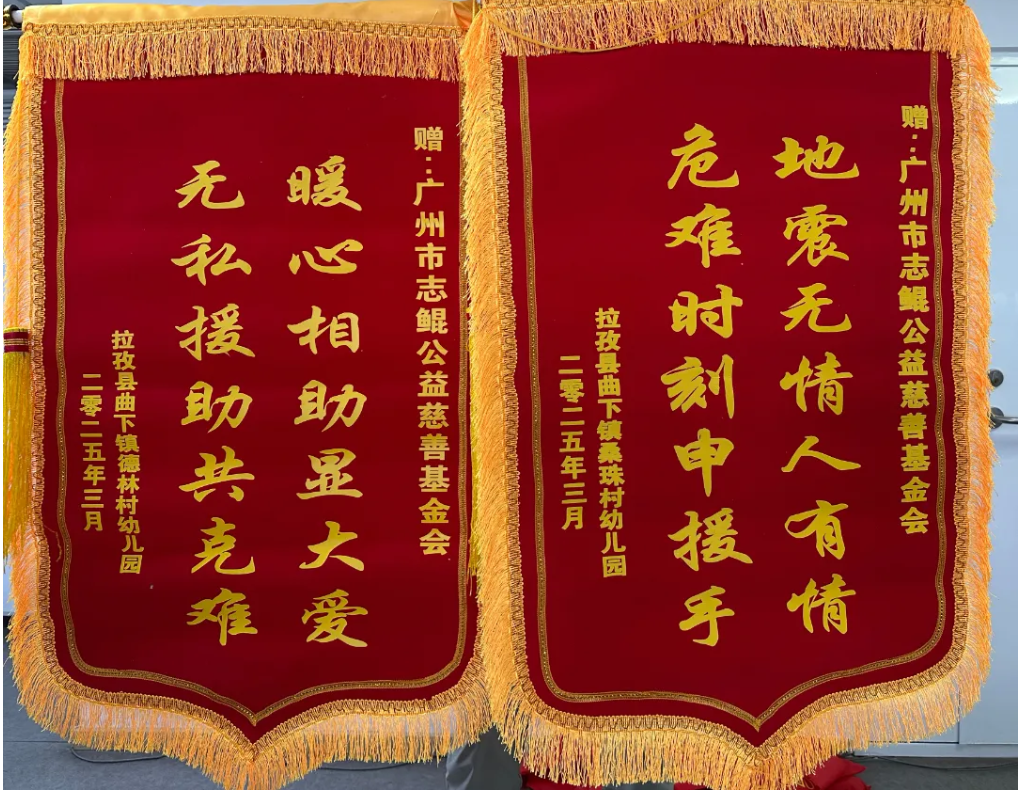 赠：广州市志鲲公益慈善基金会
暖心相助显大爱
无私援助共克难
拉孜县曲下镇德林村幼儿园
二零二五年三月
赠：广州市志鲲公益慈善基金会
地震无情人有情
危难时刻申援手
拉孜县曲下镇桑珠村幼儿园
二零二五年三月